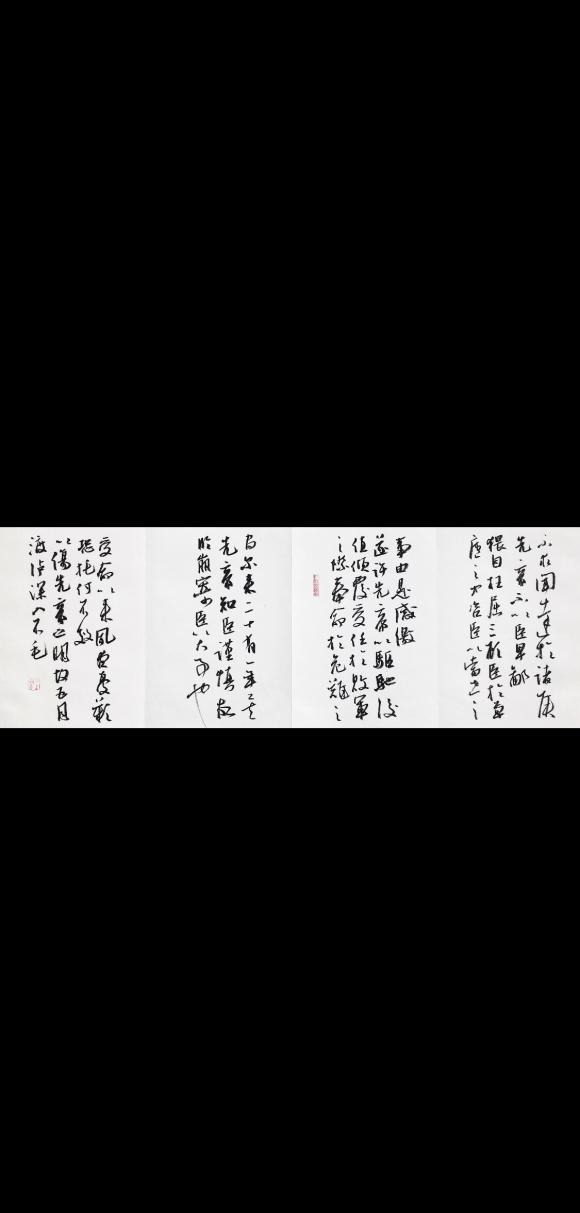 不求聞達於諸侯
先帝不以臣卑鄙
猥自枉屈三顧臣於草
廬之中咨臣以當世之
事由是感激
遂許先帝以驅馳後
值傾覆受任於敗軍
之際奉命於危難之
間尓来二十有一年矣
先帝知臣謹慎故
臨崩寄臣以大事也
受命以来夙夜憂歎
恐托付不效
以傷先帝之明故五月
渡泸深入不毛